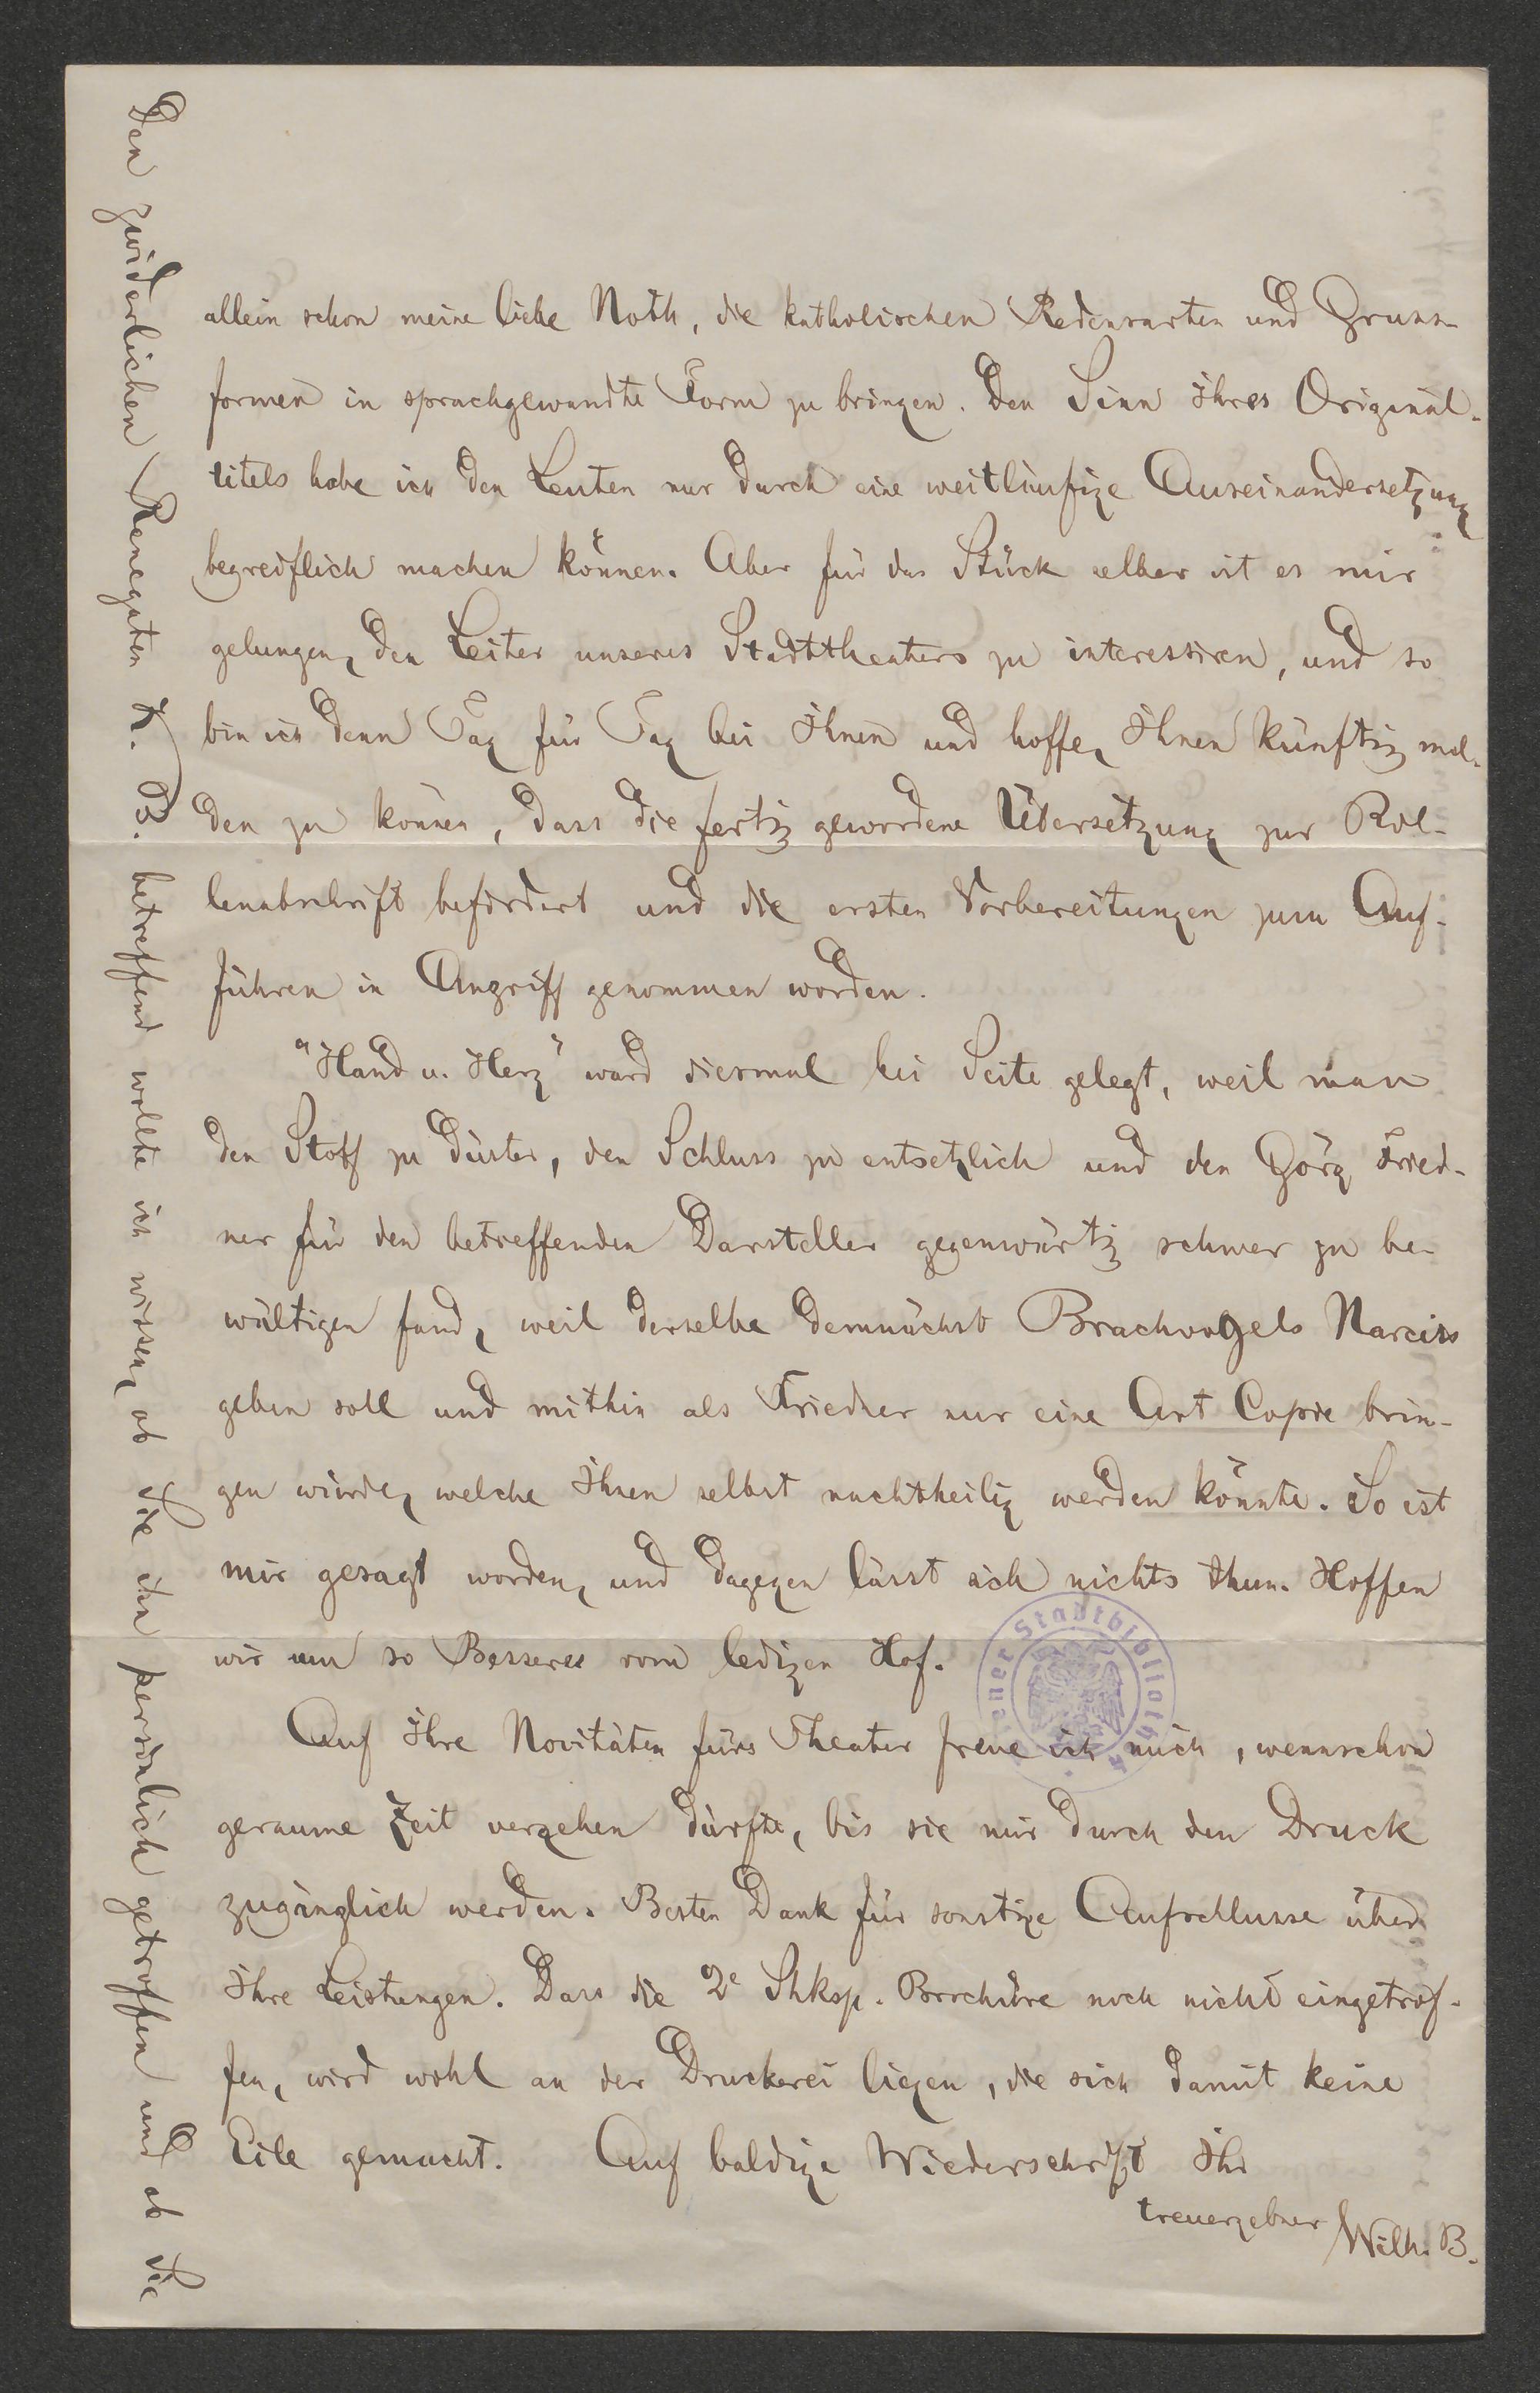 allein schon meine liebe Noth, die katholischen Redensarten und Gruss-
formen in sprachgewandte Form zu bringen. Den Sinn Ihres Original-
titels habe ich den Leuten nur durch eine weitläufige Auseinandersetzung
begreiflich machen können. Aber für das Stück selber ist es mir
gelungen, den Leiter unseres Stadttheaters zu interessiren, und so
bin ich denn Tag für Tag bei Ihnen und hoffe, Ihnen künftig mel-
den zu können, dass die fertig gewordene Übersetzung zur Rol-
lenabschrift befördert und die ersten Vorbereitungen zum Auf-
führen in Angriff genommen worden.
"Hand u. Herz" ward diesmal bei Seite gelegt, weil man
den Stoff zu düster, den Schluss zu entsetzlich und den Görg Fried-
ner für den betreffenden Darsteller gegenwärtig schwer zu be-
wältigen fand, weil derselbe demnächst Brachvogels Narciss
geben soll und mithin als Friedner nur eine Art Copie brin-
gen würde, welche Ihnen selbst nachtheilig werden könnte. So ist
mir gesagt worden, und dagegen lässt sich nichts thun. Hoffen
wir um so Besseres vom ledigen Hof.
Auf Ihre Novitäten fürs Theater freue ich mich, wennschon
geraume Zeit vergehen dürfte, bis sie mir durch den Druck
zugänglich werden. Besten Dank für sonstige Aufschlusse über
Ihre Leistungen. Dass die 2e Shksp. Brochüre noch nicht eingetrof-
fen, wird wohl an der Druckerei liegen, die sich damit keine
Eile gemacht. Auf baldige Wiederschrift Ihr
treuergebner Wilh. B.
Den zwiderlichen Renegaten K. B. betreffend wollte ich wissen, ob Sie ihn persönlich getroffen und ob Sie
Wiener Stadtbibliothek